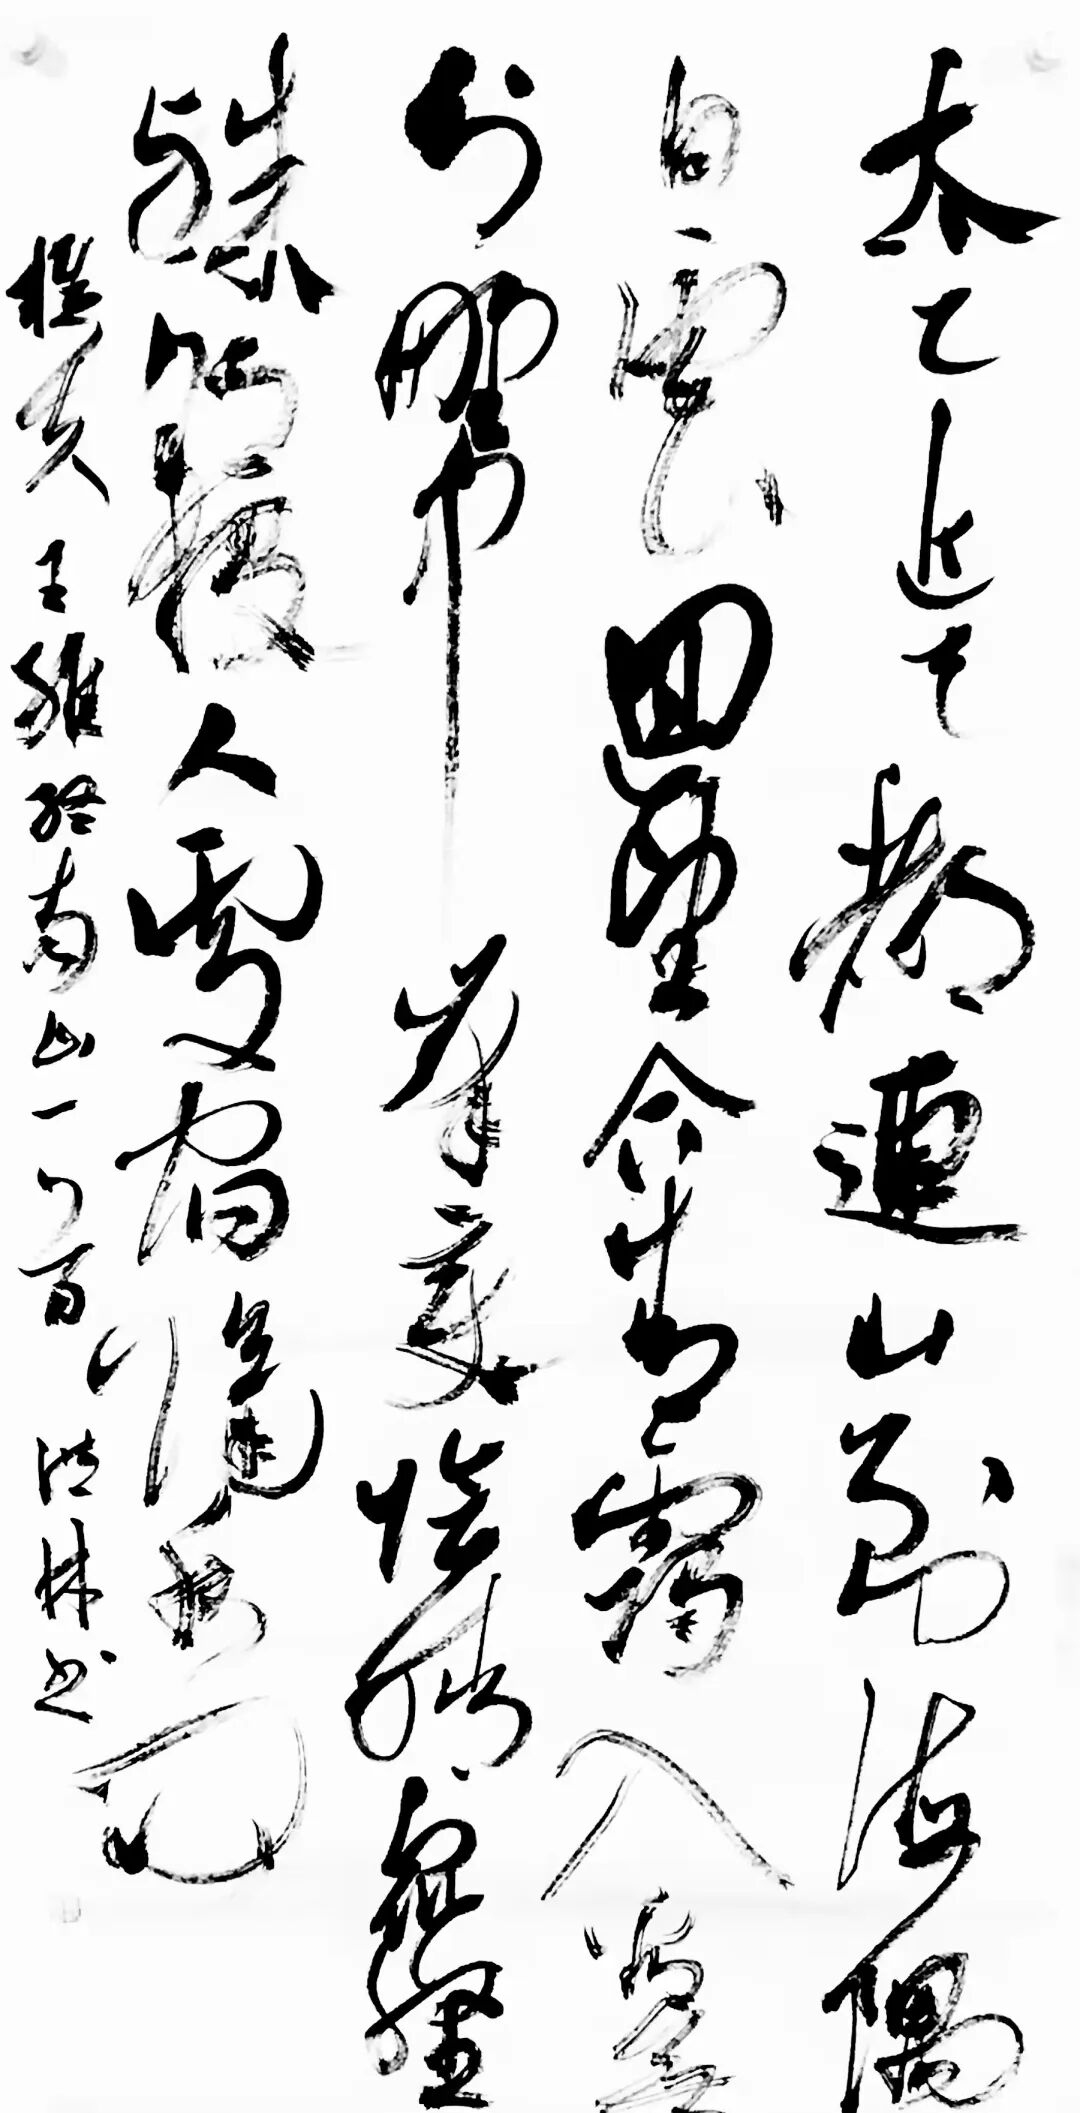 太乙近天都連山到海隅
白雲回望合青靄入看無
分野中峰變陰晴衆壑
殊欲投人處宿隔水問
樵夫 王維終南山一首 林書